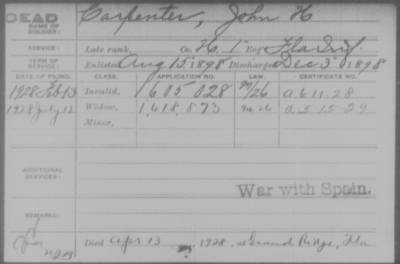 DEAD
NAME OF SOLDIER: Carpenter, John H
SERVICE: Late rank, Co. H, 1" Reg't Fla Inf.
TERM OF SERVICE: Enlisted Aug 15, 1898 Discharged Dec 3 1898
DATE OF FILING. CLASS. APPLICATION NO. LAW. CERTIFICATE NO.
1928 Feb 13 Invalid, 1,605,028 M/26 a 6 11. 28
1928 July 12 Widow, 1,618,873 m 26 a 5 15-29
Minor,
ADDITIONAL SERVICES:
War with Spain.
REMARKS:
Died Apr 13 1928, at Grand Ridge, Fla